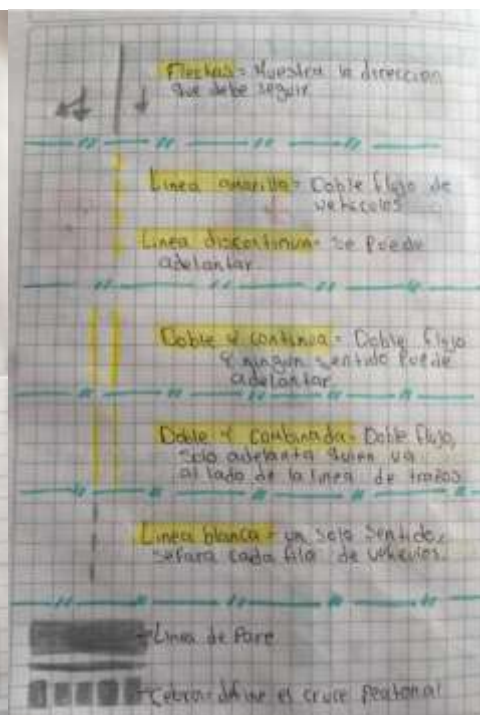 Flechas = Muestra la dirección
que debe seguir.
Linea amarilla = Doble flujo de
vehiculos
Linea discontinua = Se puede
adelantar.
Doble y continua = Doble flujo
y ningun sentido puede
adelantar.
Doble y combinada = Doble flujo,
solo adelanta quien va
al lado de la linea de trazos
Linea blanca = un solo sentido,
separa cada fila de vehiculos.
Linea de Pare
Cebra = define el cruce peatonal